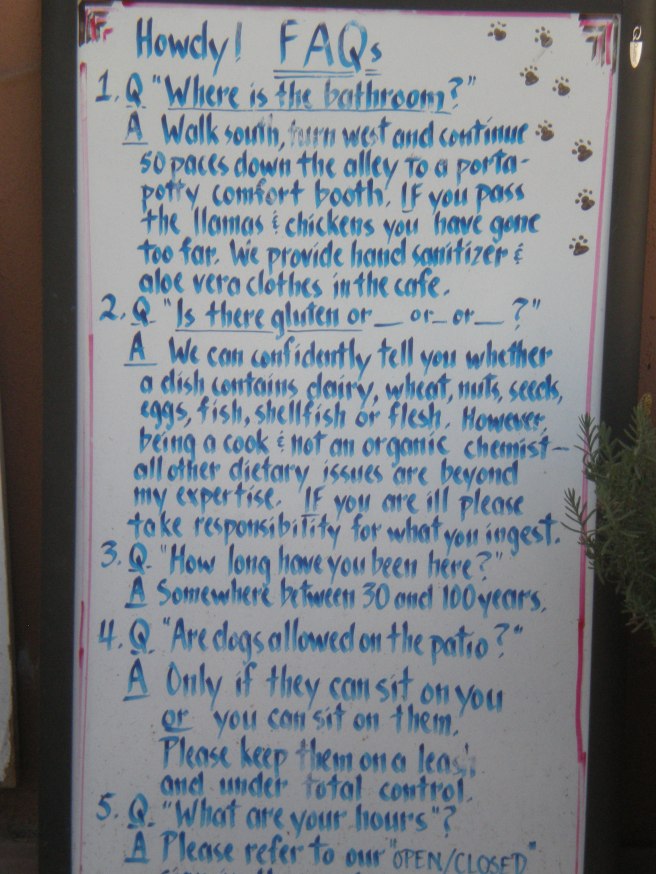 Howdy! FAQs
1. Q "Where is the bathroom?"
A Walk south, turn west and continue
50 paces down the alley to a porta-
potty comfort booth. IF you pass
the llamas & chickens you have gone
too far. We provide hand sanitizer &
aloe vera clothes in the cafe.
2. Q "Is there gluten or __ or _ or __ ?"
A We can confidently tell you whether
a dish contains dairy, wheat, nuts, seeds,
eggs, fish, shellfish or flesh. However,
being a cook & not an organic chemist—
all other dietary issues are beyond
my expertise. IF you are ill please
take responsibility for what you ingest.
3. Q. "How long have you been here?"
A Somewhere between 30 and 100 years.
4. Q. "Are dogs allowed on the patio?"
A Only if they can sit on you
or you can sit on them.
Please keep them on a leash
and under total control.
5. Q. "What are your hours"?
A Please refer to our "OPEN/CLOSED"